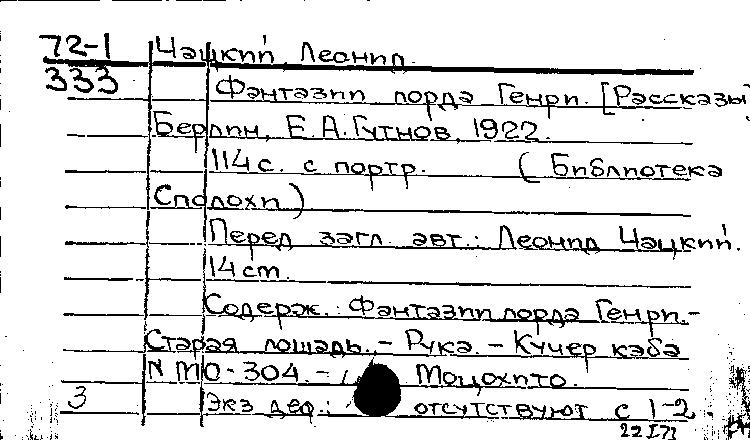 72-1 Чацкий Леонид.
333 Фантазии лорда Генри. [Рассказы]
Берлин, Е.А.Гутнов, 1922.
114 с. с портр. (Библиотека
Сполохи)
Перед загл. авт.: Леонид Чацкий.
14 cm.
Содерж.: Фантазии лорда Генри.-
Старая лошадь.- Рука.- Кучер кэба
N МО-304.- Моцохито.
3 Экз деф.: отсутствуют с 1-2
22 I 72